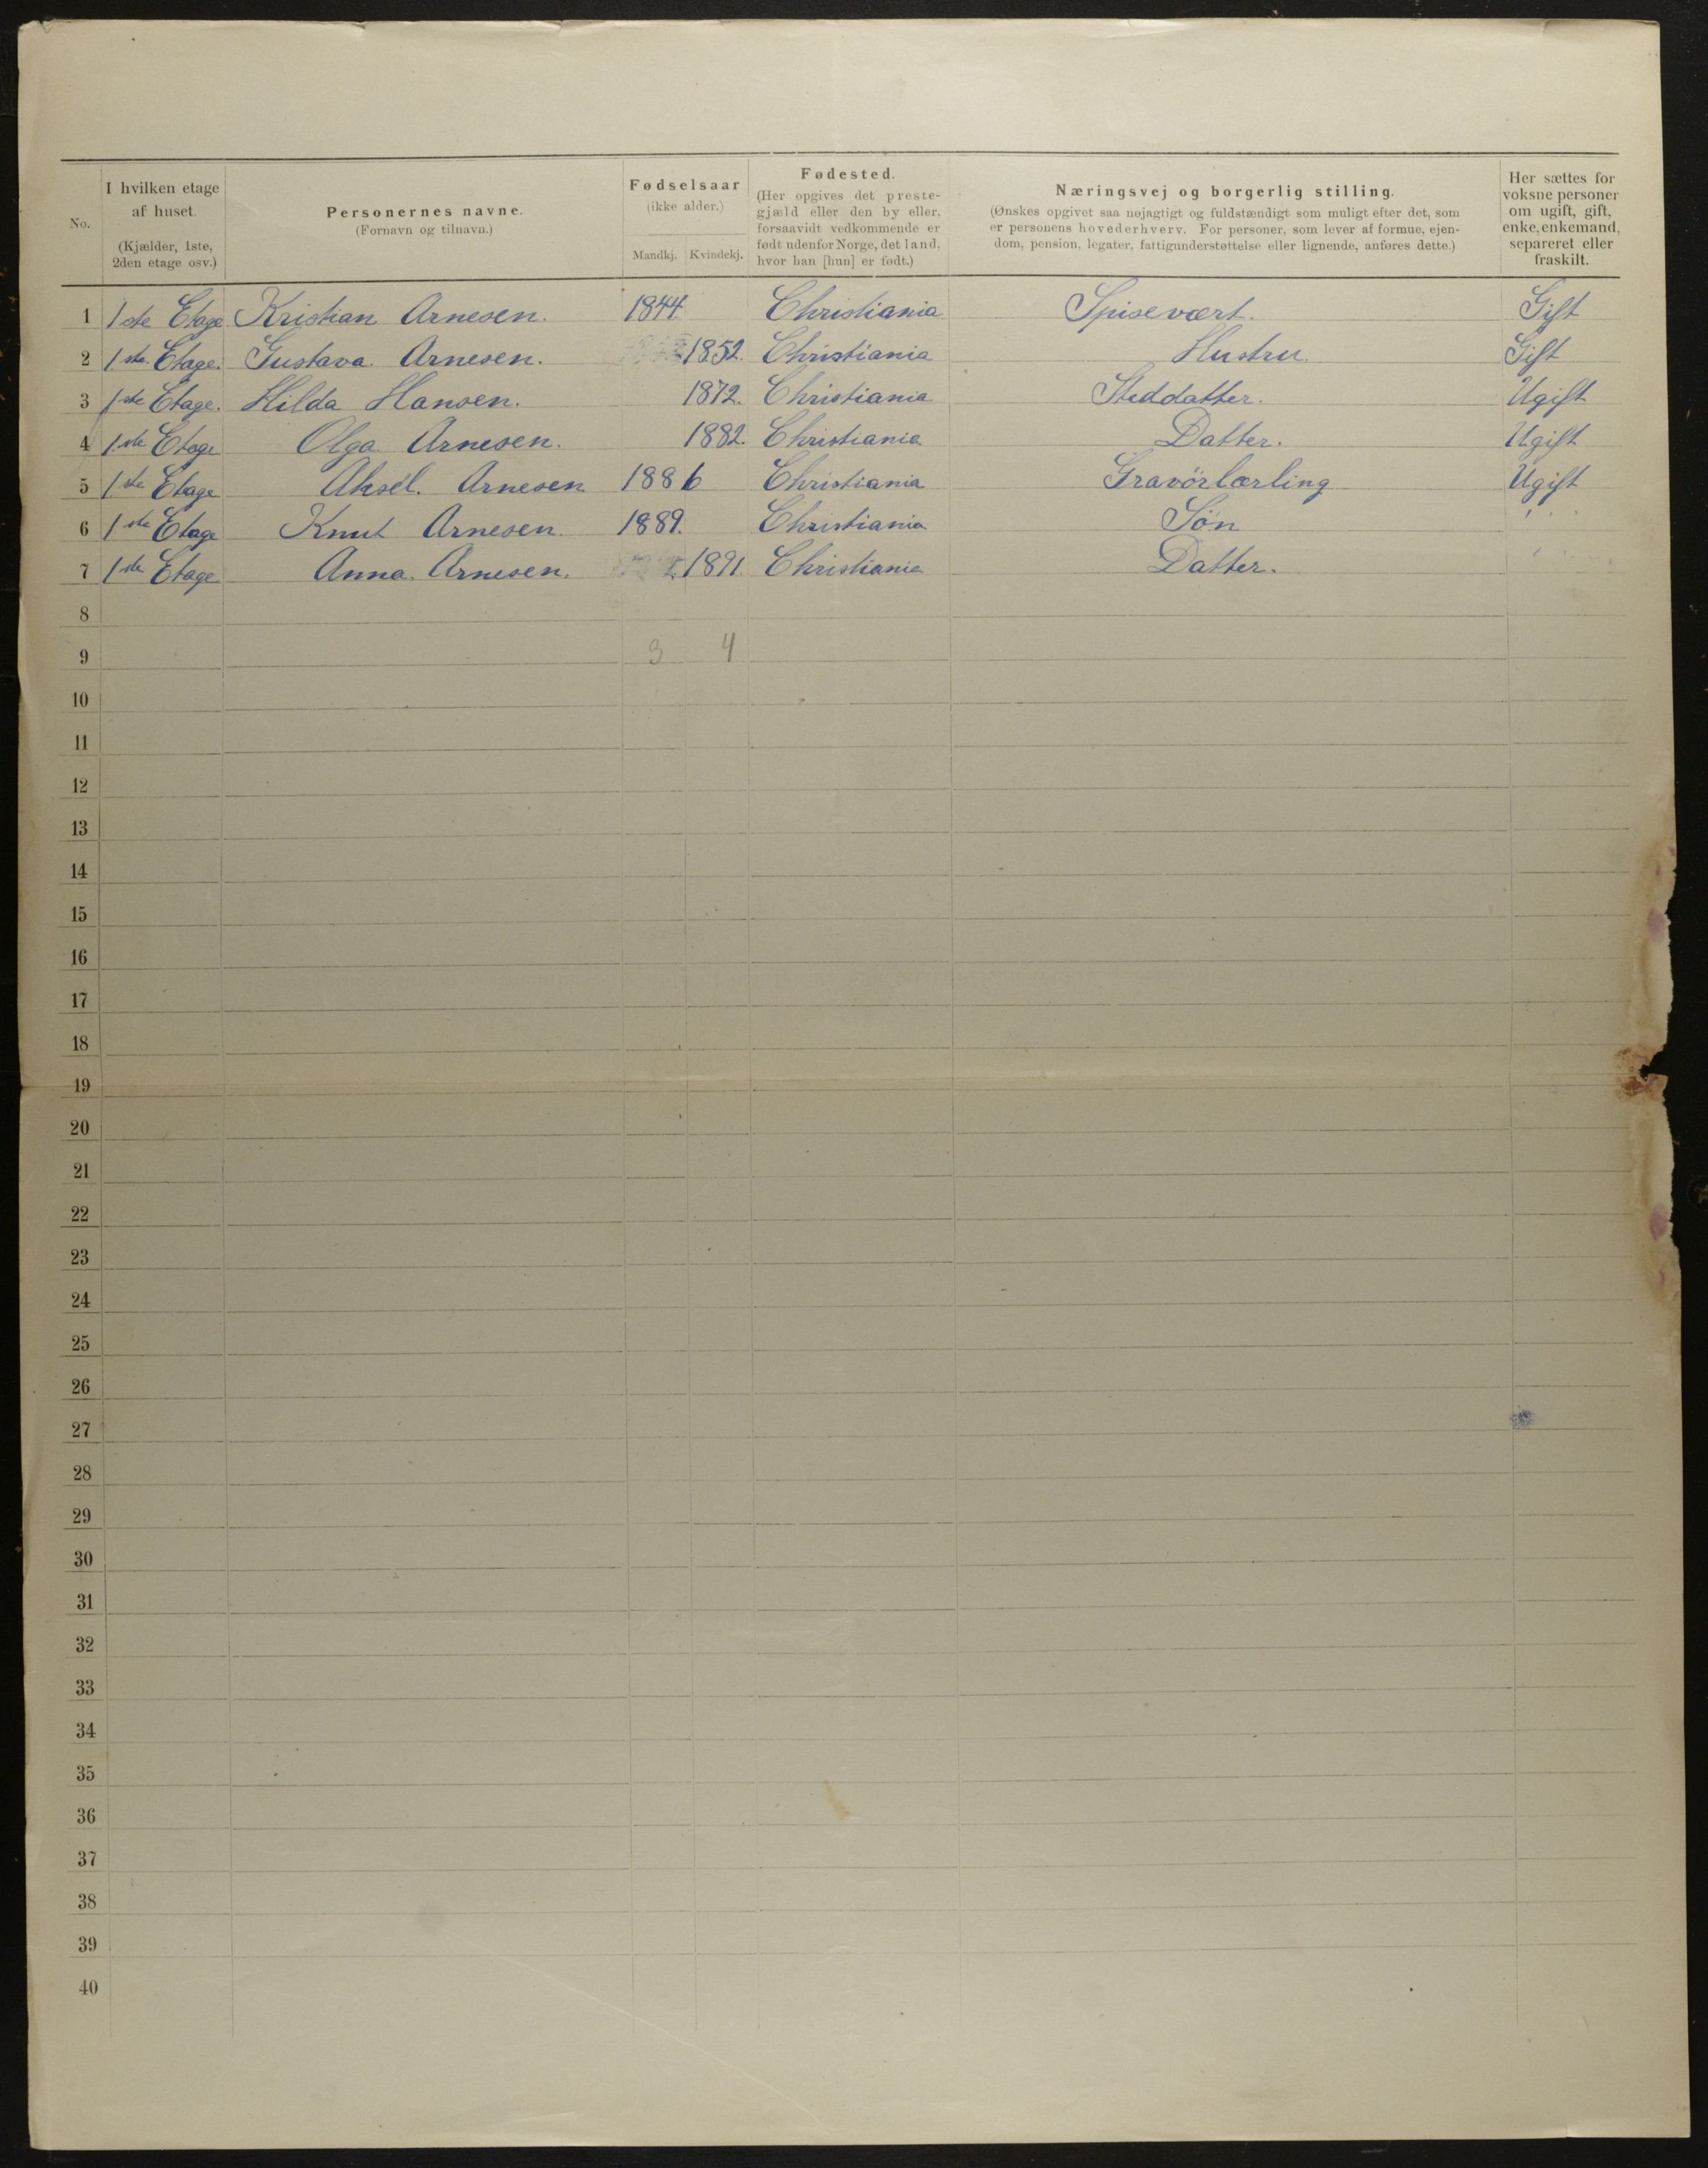 No.
I hvilken etage
af huset.
(Kjælder, 1ste,
2den etage osv.)
Personernes navne.
(Fornavn og tilnavn.)
Fødselsaar
(ikke alder.)
Mandkj. Kvindekj.
Fødested.
(Her opgives det preste-
gjæld eller den by eller,
forsaavidt vedkommende er
født udenfor Norge, det land,
hvor han [hun] er født.)
Næringsvej og borgerlig stilling.
(Ønskes opgivet saa nøjagtigt og fuldstændigt som muligt efter det, som
er personens hovederhverv. For personer, som lever af formue, ejen-
dom, pension, legater, fattigunderstøttelse eller lignende, anføres dette.)
Her sættes for
voksne personer
om ugift, gift,
enke, enkemand,
separeret eller
fraskilt.
1 1ste Etage Kristian Arnesen. 1844. Christiania Spisevært. Gift
2 1ste Etage. Gustava Arnesen. 1852. Christiania Hustru. Gift
3 1ste Etage. Hilda Hansen. 1872. Christiania Steddatter. Ugift
4 1ste Etage Olga Arnesen. 1882. Christiania Datter. Ugift
5 1ste Etage Aksel. Arnesen 1886 Christiania Gravörlærling Ugift
6 1ste Etage Knut Arnesen 1889. Christiania Sön
7 1ste Etage Anna. Arnesen. 1891. Christiania Datter.
8
9 3 4
10
11
12
13
14
15
16
17
18
19
20
21
22
23
24
25
26
27
28
29
30
31
32
33
34
35
36
37
38
39
40